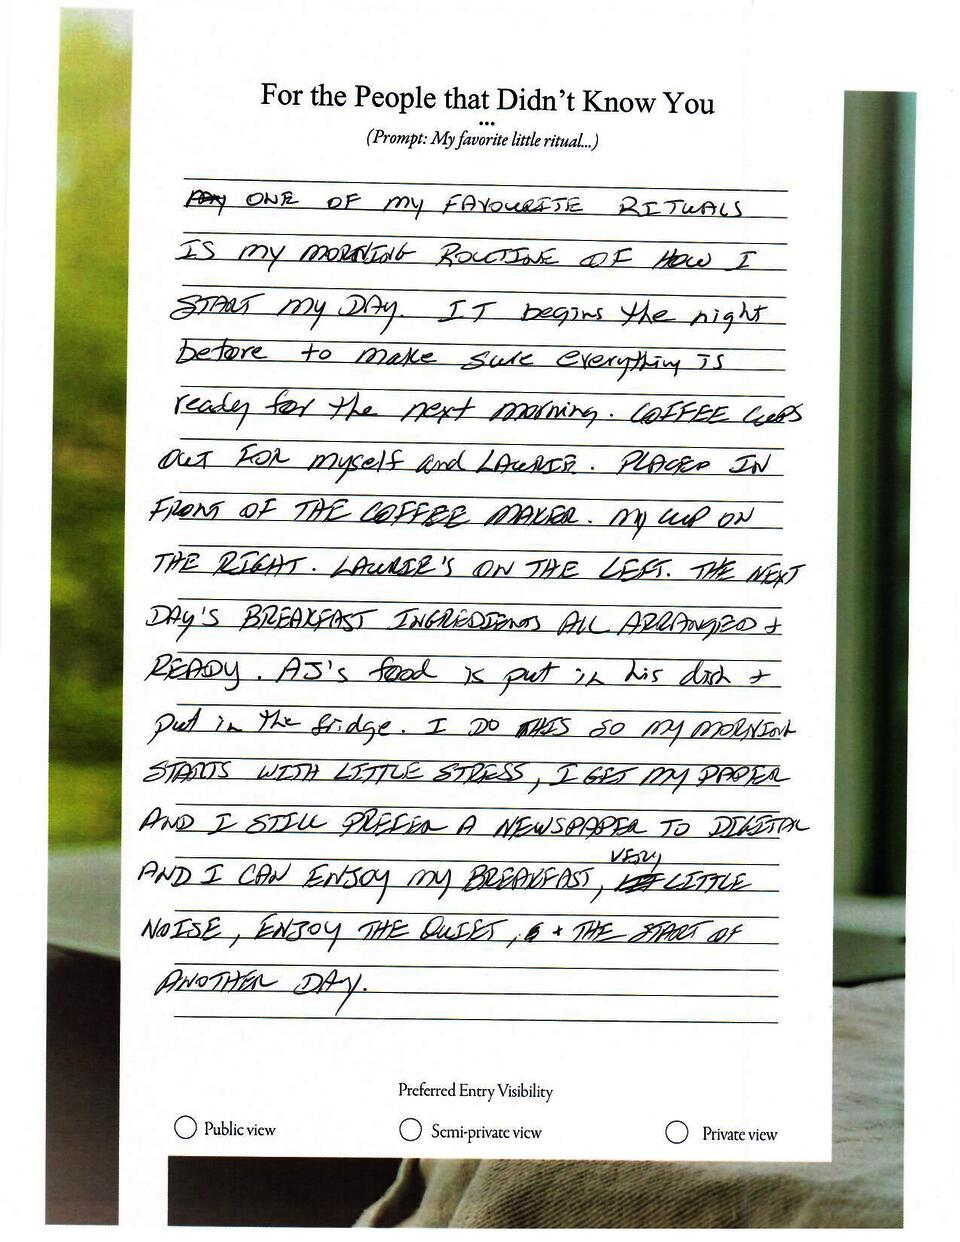 For the People that Didn't Know You
...
(Prompt: My favorite little ritual...)
ONE OF my FAVOURITE RITUALS
IS my MORNING ROUTINE OF HOW I
START my DAY. IT begins the night
before to make sure everything is
ready for the next morning. COFFEE CUPS
OUT FOR myself and LAURIE. PLACED IN
FRONT OF THE COFFEE MAKER. My CUP ON
THE RIGHT. LAURIE'S ON THE LEFT. THE NEXT
DAY'S BREAKFAST INGREDIENTS ALL ARRANGED +
READY. AJ's food is put in his dish +
put in the fridge. I DO THIS SO MY MORNING
STARTS WITH LITTLE STRESS, I GET MY PAPER
AND I STILL PREFER A NEWSPAPER TO DIGITAL
AND I CAN ENJOY my BREAKFAST, VERY LITTLE
NOISE, ENJOY THE QUIET, + THE START OF
ANOTHER DAY.
Preferred Entry Visibility
Public view Semi-private view Private view